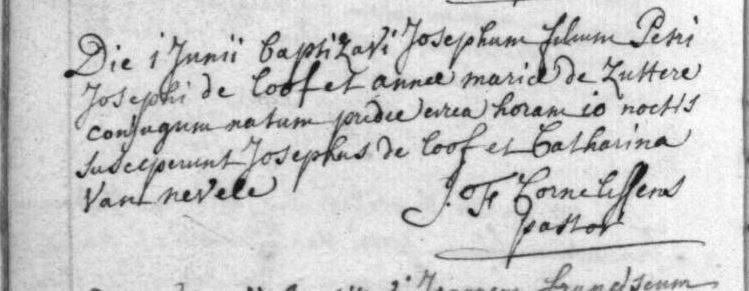 Die 1 Junii baptizavi Josephum filium Petri
Josephi de Coof et annae mariae de Zuttere
conjugum natum pridie circa horam 10 noctis
susceperunt Josephus de Coof et Catharina
van nevele
J. F. Cornelissens
pastor
franciscum